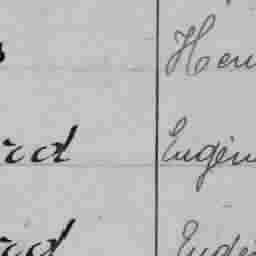 s Hen
rd Eugén
rd Eugé